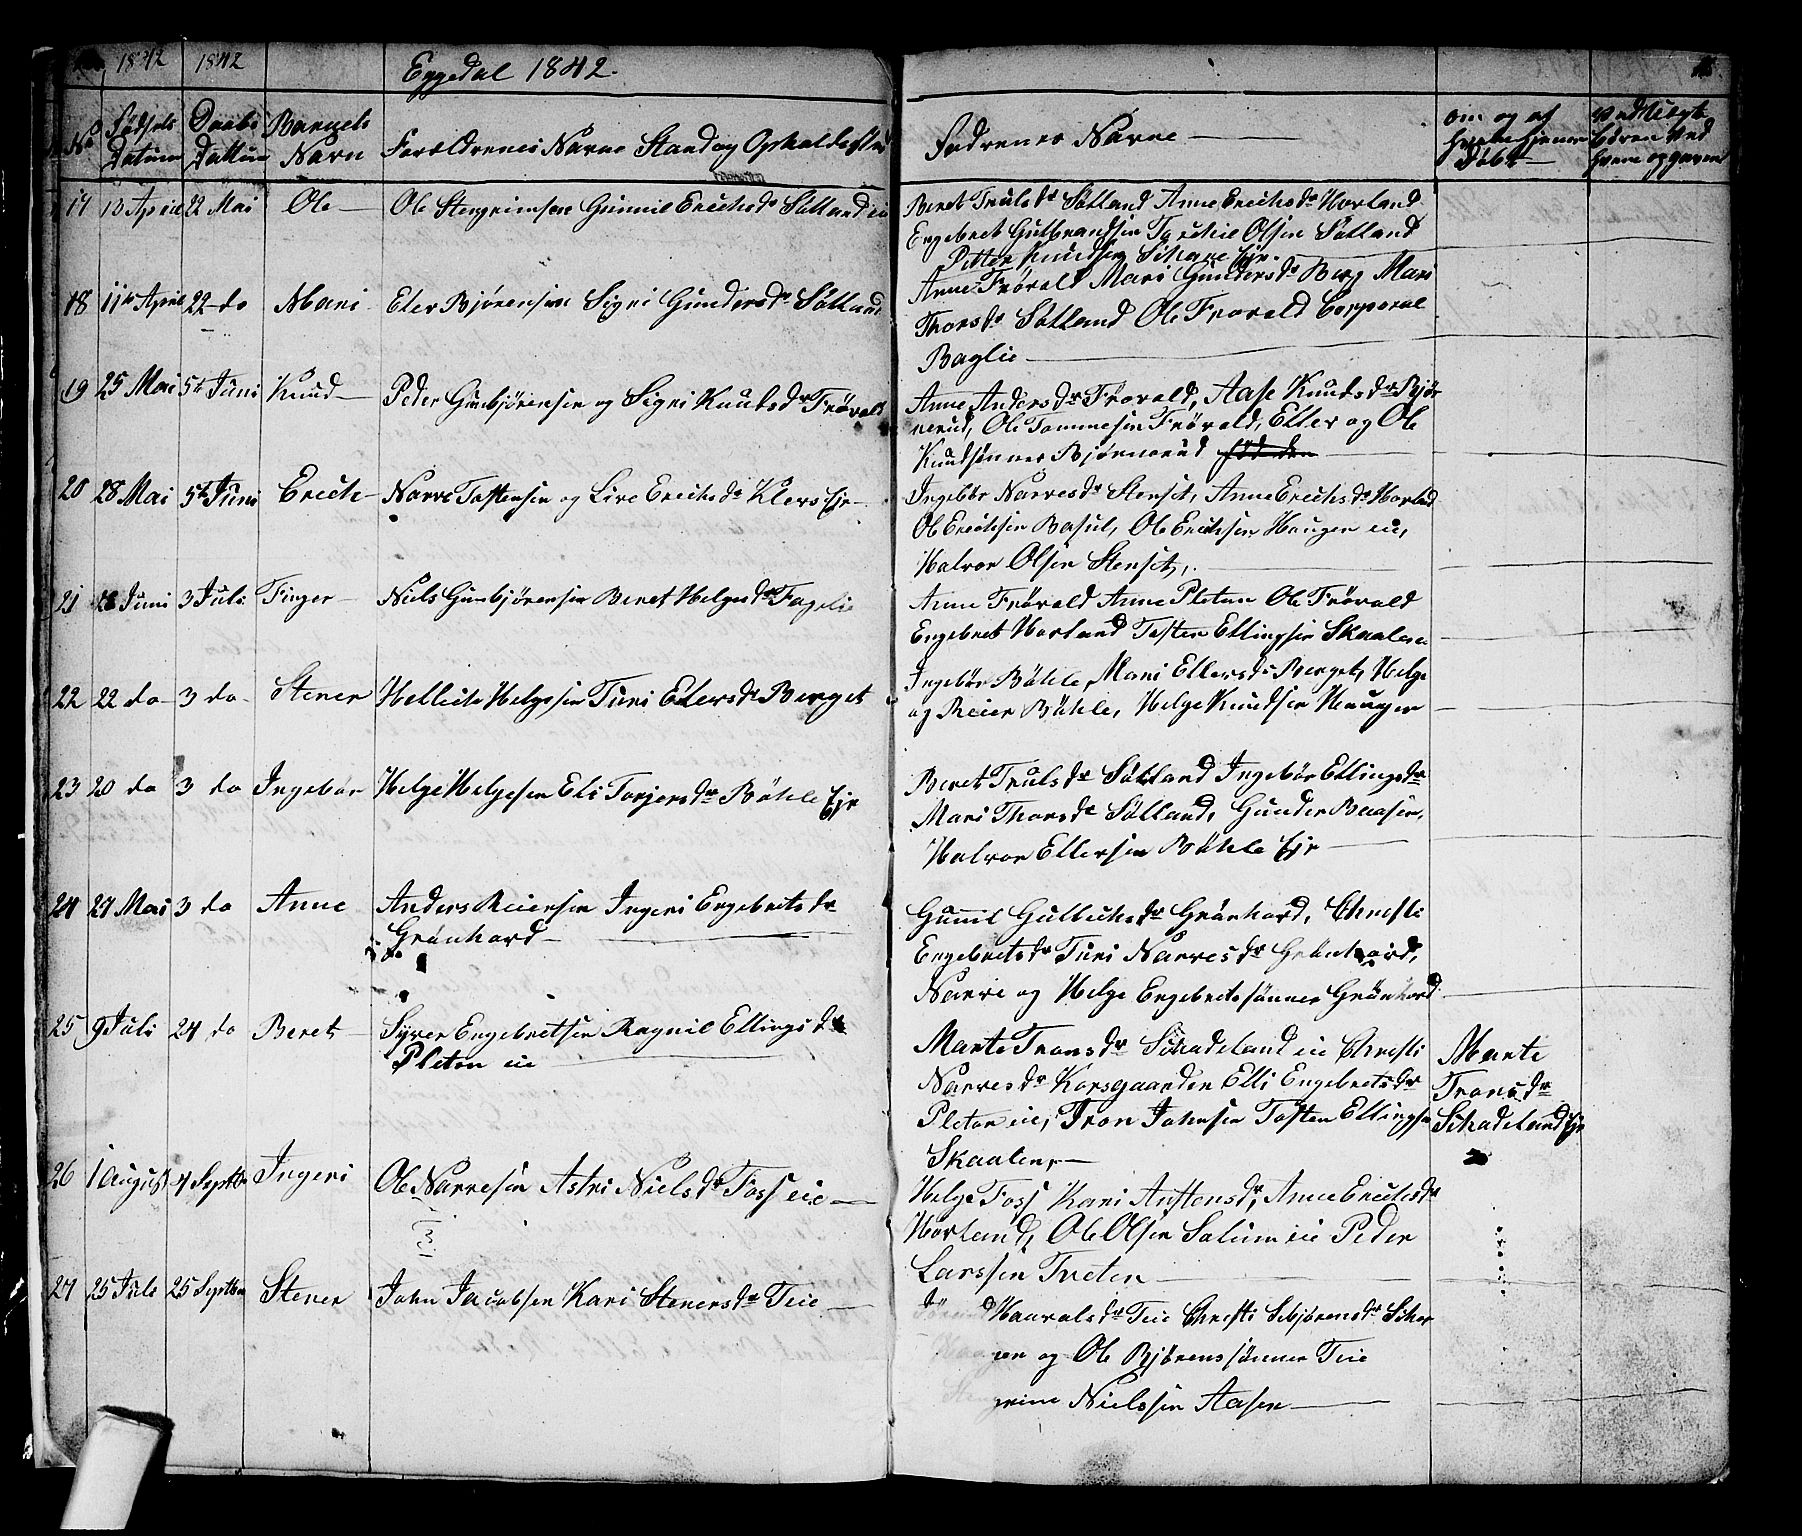 1842 1842 Eggedal 1842.
No Fødsels Datum Daabs Dattum Barnets Navn Forældrenes Navne Stand og Opholdsted
Fadrenes Navne
om og af
Hjemmedøbt
17 13 April 22 Mai Ole Ole Stengrimsen Gunnil Erichsdr Sätland eie
Beret Trulsdr Sätland Anne Erichsdr Horland
Engebret Gulbrandsen Torchil Olsen Sätland
Petter Knudsen Schare Ejr.
18 11te April 22 do Mari Eler Bjørensen Sigri Gundersdr Sätland
Anne Frøvold Mari Gundersdr Berg Mari
Thorsdr Sätland Ole Frøvold Corporal
Baglie
19 25 Mai 5te Juni Knud Peder Gunbjørensen og Sigri Knutsdr Frøvold
Anne Andersdr Frøvold, Aase Knutsdr Bjør
nerud, Ole Tommesen Frøvold, Eller og Ole
Knudsønner Bjørnerud
20 28 Mai 5te Juni Erich Narve Tostensen og Live Erichsdr Klers Ejr
Ingebør Narvesdr Stensit, Anne Erichsdr Horland
Ole Erichsen Basul, Ole Erichsen Haugen eie,
Halvor Olsen Stensit,
21 18 Juni 3 Juli Finger Niels Gunbjørensen Beret Helgesdr Fagelie
Anne Frøvold Anne Pleten Ole Frøvold
Engebret Horland Tosten Ellingsen Skaalen
22 22 do 3 do Stener Hellich Helgesen Turi Elersdr Berget
Ingebør Bøhle, Mari Ellersdr Berget, Helge
og Reier Bøhle, Helge Knudsen Haugen
23 20 do 3 do Ingebør Helge Helgesen Eli Torjersdr Bøhle Ejr
Beret Trulsdr Sätland Ingebør Ellingsdr
Mari Thorsdr Sätland, Gunder Baasen,
Halvor Ellersen Bøhle Ejr
24 27 Mai 3 do Anne Anders Reiersen Ingeri Engebretsdr
Grønhord
Gunnil Gullichsdr Grønhord, Christi
Engebretsdr Turi Narvesdr Grønhord,
Narve og Helge Engebretssønner Grønhord
25 9 Juli 24 do Beret Syver Engebretsen Ragnil Ellingsdr
Pleton eie
Marte Tronsdr Schadeland eie Christi
Narvesdr Korsgaarden Elli Engebretsdr
Pleton eie, Tron Johnsen Tosten Ellingsen
Skaalen,
Marte
Tronsdr
Schadeland Ejr
26 1 August 4 Septbr Ingeri Ole Narvesen Astri Nielsdr Foss eie
Helge Foss Kari Anstensdr, Anne Erichsdr
Horland, Ole Olsen Solum eie Peder
Larssen Tveten
27 25 Juli 25 Septbr Stener John Jacobsen Kari Stenersdr Teie
Haavalsdr Teie Christi Sebjørensdr Scher
gen og Ole Bjørenssønner Teie
Nielssen Aasen